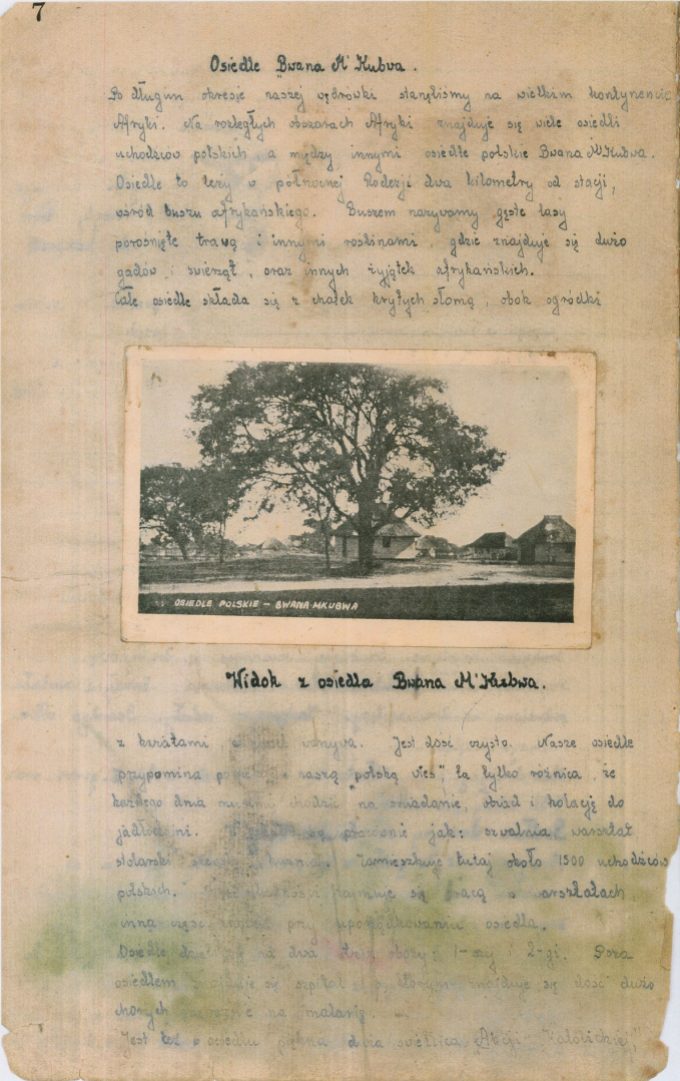 7
Osiedle Bwana M'Kubva.
Po długim okresie naszej wędrówki stanęliśmy na wielkim kontynencie
Afryki. Na rozległych obszarach Afryki znajduje się wiele osiedli
uchodzców polskich a między innymi osiedle polskie Bwana M'Kubwa.
Osiedle to leży w północnej Rodezji dwa kilometry od stacji,
wśród buszu afrykańskiego. Buszem nazywamy gęste lasy
porośnięte trawą i innymi roslinami, gdzie znajduje się dużo
gadów i zwierząt, oraz innych żyjątek afrykańskich.
Całe osiedle składa się z chatek krytych słomą, obok ogródki
OSIEDLE POLSKIE - BWANA-MKUBWA
Widok z osiedla Bwana M'Kubwa.
z kwiatami, Jest dość czysto. Nasze osiedle
przypomina naszą "polską wieś", ta tylko różnica, że
każdego dnia musimy chodzić na śniadanie, obiad i kolację do
jadłodajni. pracownie jak: szwalnia, warsztat
stolarski Zamieszkuje tutaj około 1500 uchodzców
polskich. ludności zajmuje się pracą w warsztatach
inna część przy uporządkowaniu osiedla.
Osiedle dzieli się na dwa obozy: 1-szy i 2-gi. Poza
osiedlem znajduje się szpital w którym znajduje się dość dużo
chorych na malarię.
Jest też w osiedlu świetlica Akcji Katolickiej,